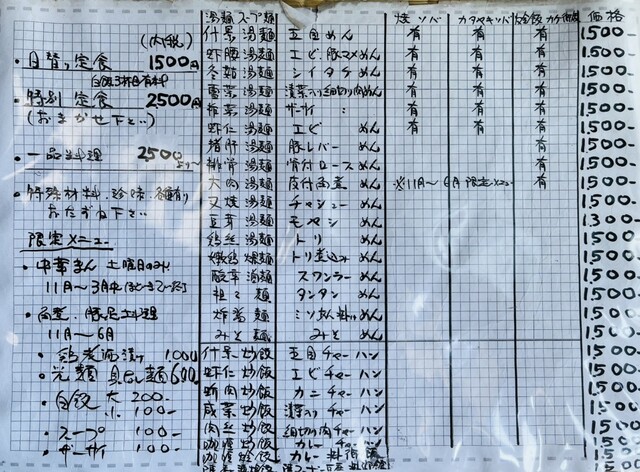 (内税)
・日替り定食 1500円
・特別定食 2500円
(おまかせ下さい)
・一品料理 2500円より〜
・特殊材料、珍味、各種有り
おたずね下さい
限定メニュー
・中華まん 土曜日のみ
11月〜3月中
・角煮、豚足料理
11月〜6月
・鶏老酒漬け 1.000
・光麺 具なし麺 600
・白飯 大 200-
小 100-
・スープ 100-
・ザーサイ 100-
湯麺 スープ麺 焼ソバ カタヤキソバ 価格
什景湯麺 五目めん 有 有 有 1.500-
蝦腰湯麺 エビ、豚マメめん 有 有 有 1.600-
冬菇湯麺 シイタケめん 有 有 有 1500-
雪菜湯麺 漬菜入り細切り肉めん 有 有 有 1.500-
搾菜湯麺 ザーサイ 〃 有 有 有 1.500-
蝦仁湯麺 エビ めん 有 有 有 1.500-
猪肝湯麺 豚レバー めん 有 1500-
排骨湯麺 骨付ロース めん 有 1.500-
大肉湯麺 皮付角煮 めん ※11月〜6月限定メニュー 有 1.500-
叉焼湯麺 チャシュー めん 1500-
豆芽湯麺 モヤシ めん 1.300-
鶏絲湯麺 トリ めん 1500-
トリ煮込み めん 1500-
酸辛湯麺 スワンラー めん 1.500-
担々麺 タンタン めん 1.500-
炸醤麺 ミソ肉掛け めん 1.500-
みそ麺 みそ めん 1.500-
什景炒飯 五目チャーハン 1500-
蝦仁炒飯 エビチャーハン 1500-
蟹肉炒飯 カニチャーハン 1500-
咸菜炒飯 漬菜入りチャーハン 1.500-
肉絲炒飯 細切り肉チャーハン 1500-
咖喱炒飯 カレーチャーハン 1500-